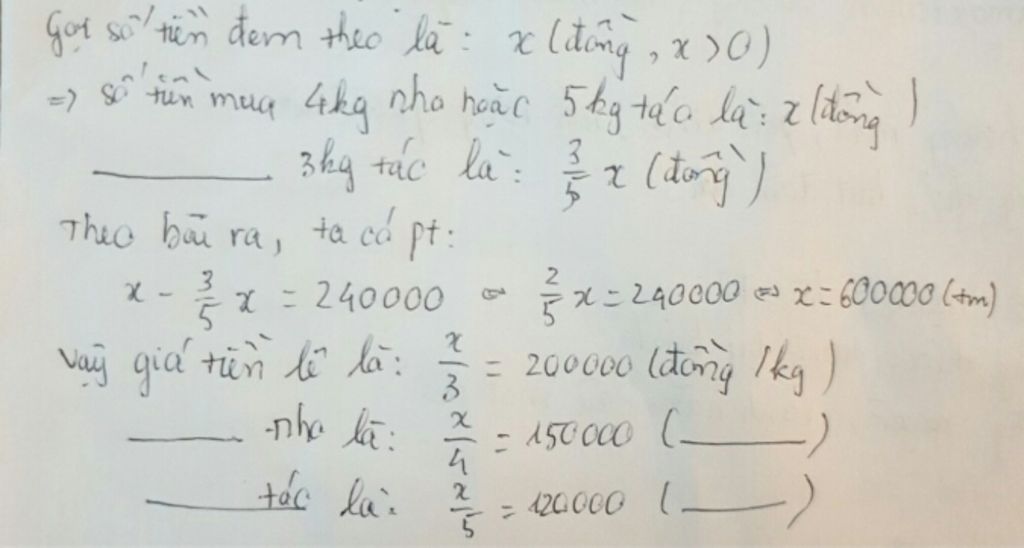 Gọi số tiền đem theo là: x (đồng, x > 0)
=> số tiền mua 4kg nho hoặc 5kg tác là: x (đồng)
_______ 3kg tác là: 3/5 x (đồng)
Theo bài ra, ta có pt:
x - 3/5 x = 240000 ⇔ 2/5 x = 240000 ⇔ x = 600000 (tm)
Vậy giá tiền lê là: x/3 = 200000 (đồng /kg)
_______ nho là: x/4 = 150000 (_______)
_______ tác là: x/5 = 120000 (_______)